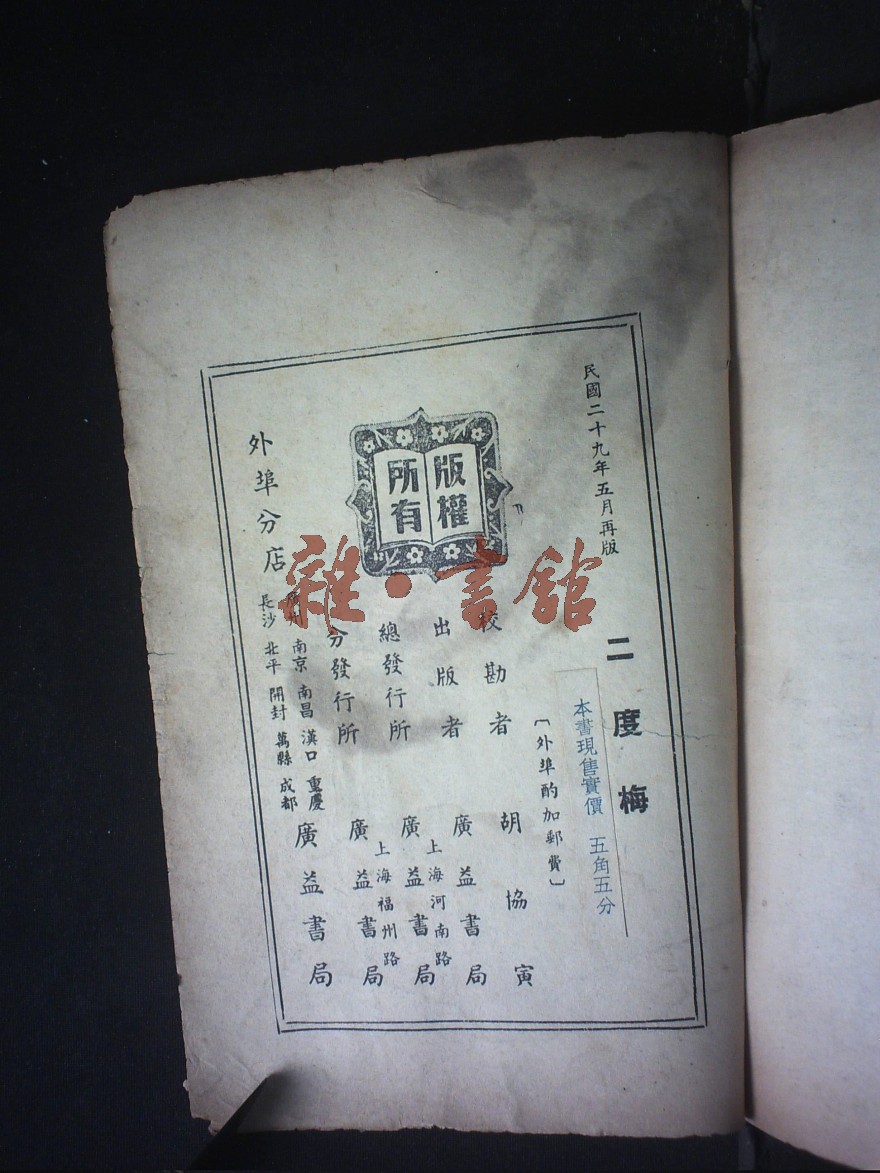 民國二十九年五月再版
二度梅
本書現售實價 五角五分
〔外埠酌加郵費〕
版權
所有
校勘者 胡協寅
出版者 廣益書局
上海河南路
總發行所 廣益書局
上海福州路
分發行所 廣益書局
外埠分店
南京 南昌 漢口 重慶
長沙 北平 開封 萬縣 成都
廣益書局
雜·書館